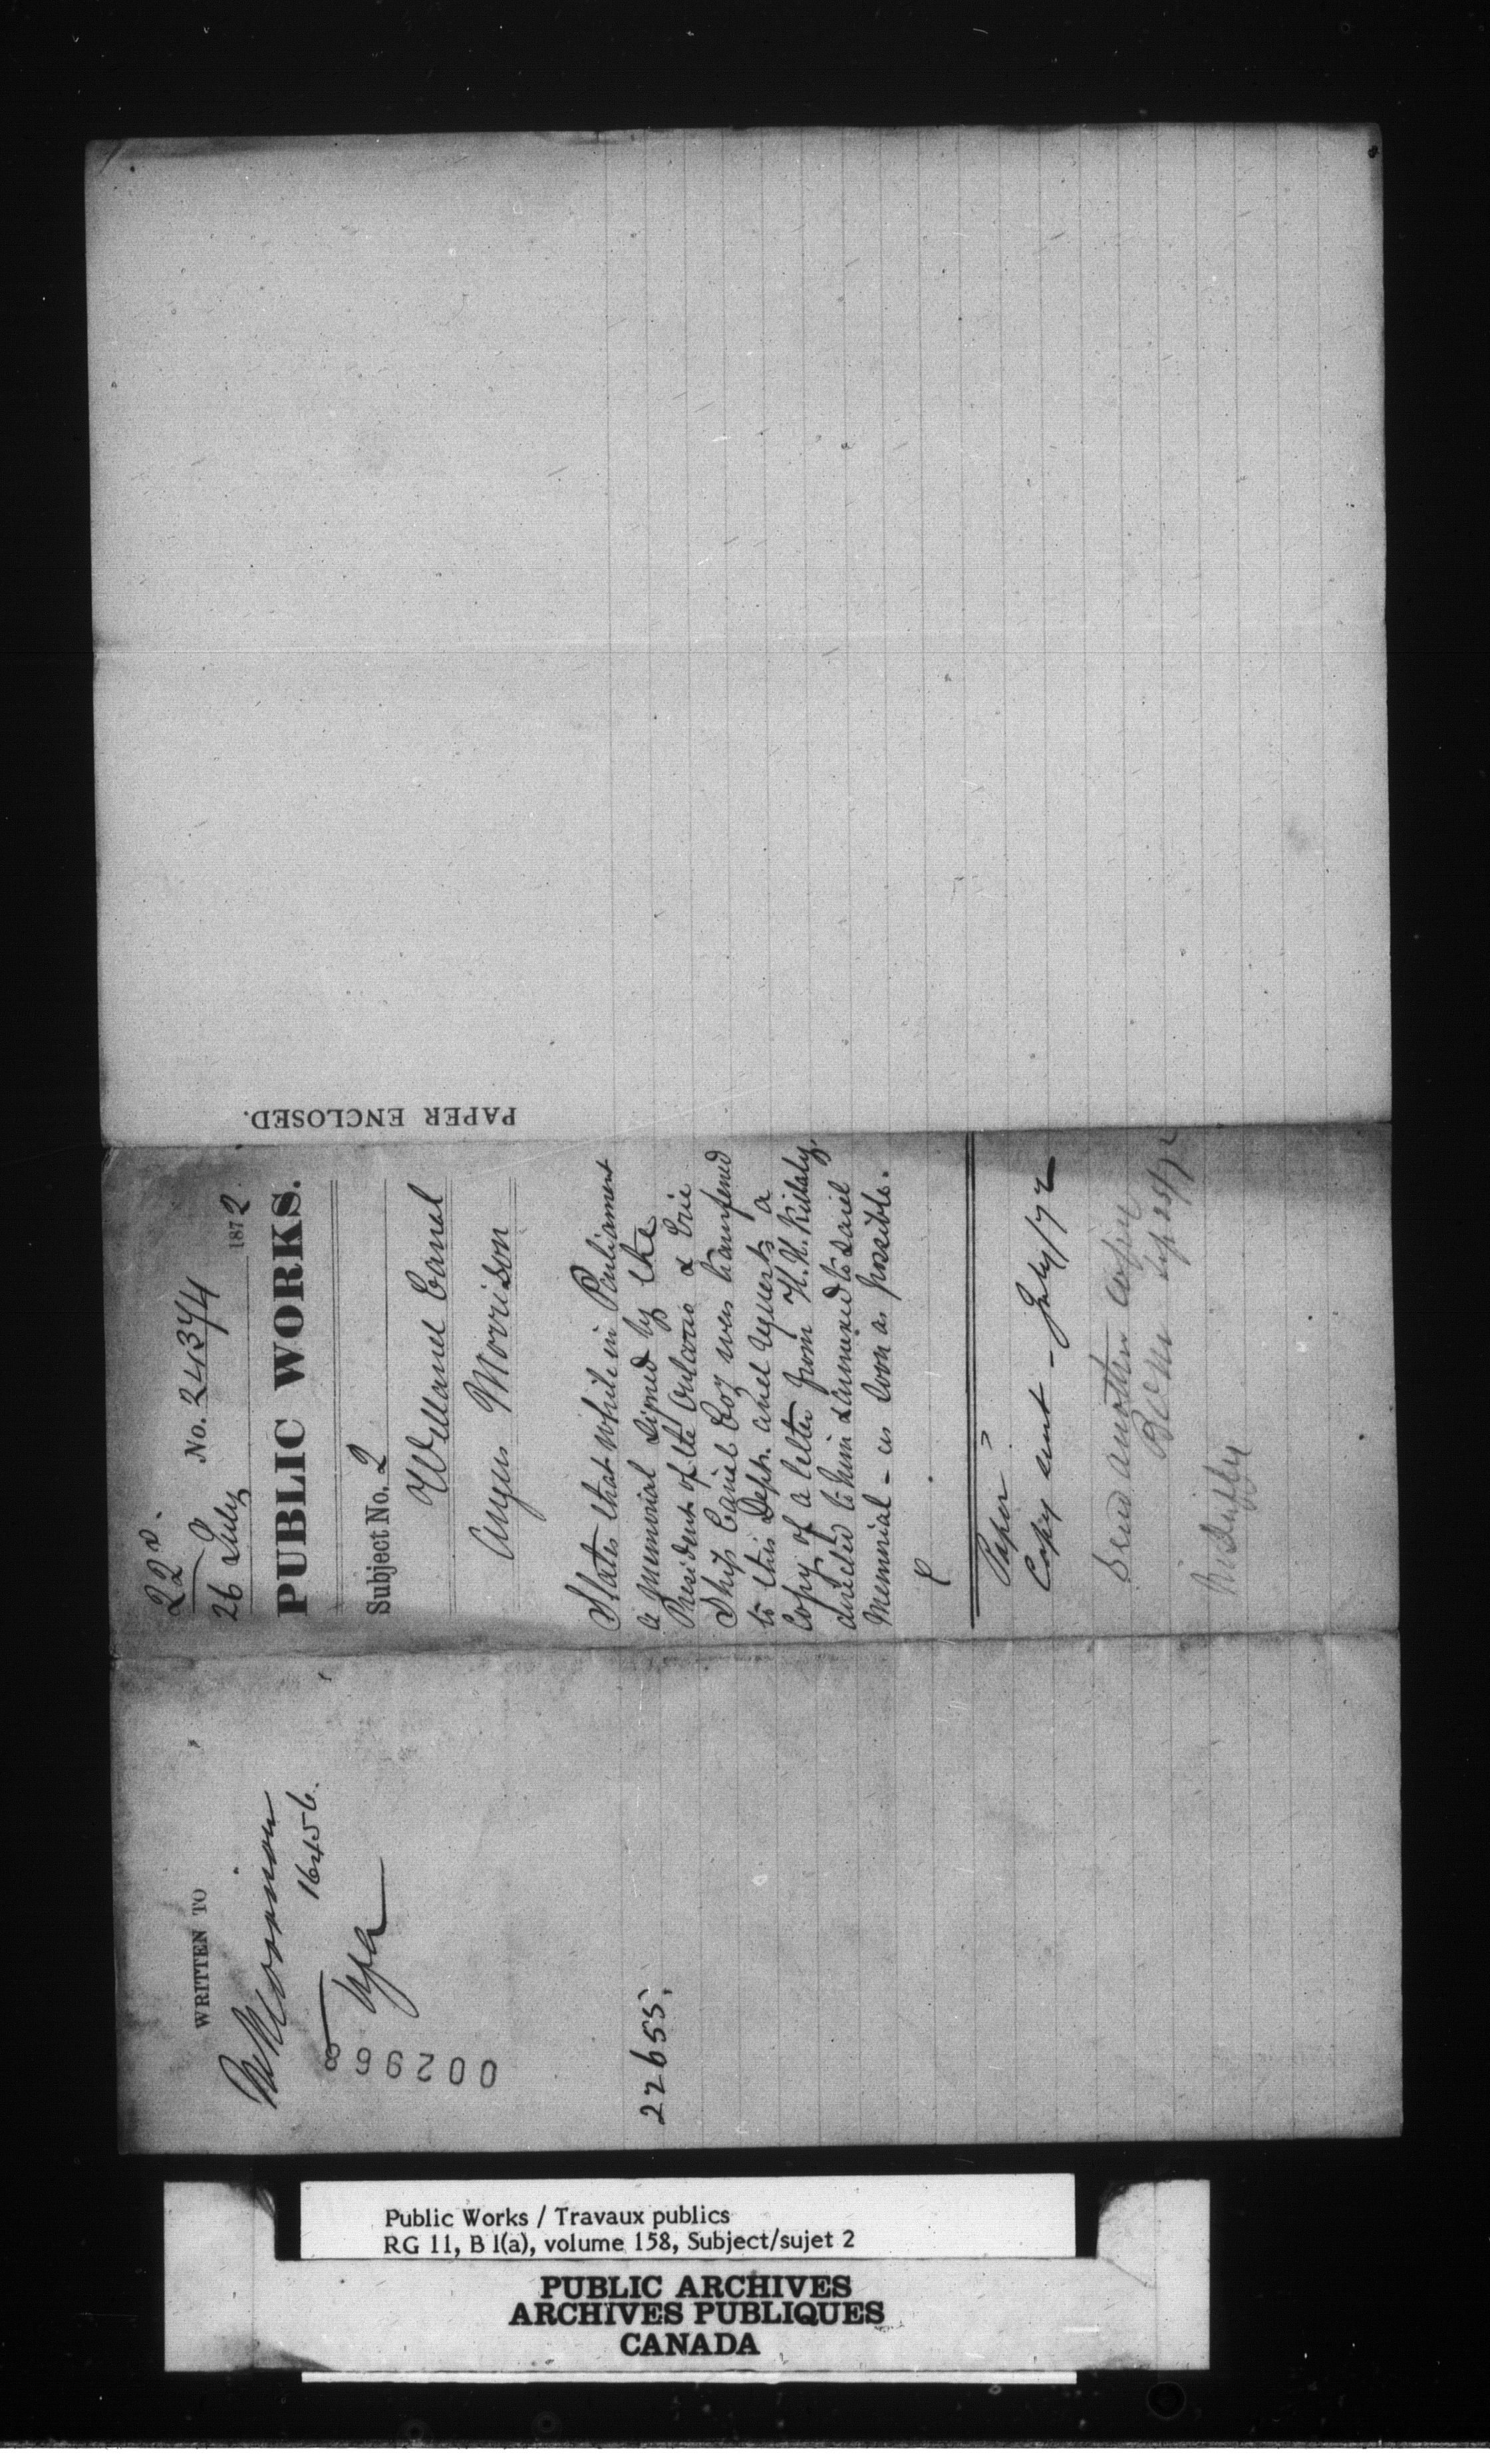 22d.
26 July
No. 24374
1872
PUBLIC WORKS.
Subject No. 2
Welland Canal
Angus Morrison
States that while in Parliament
a memorial signed by the
President of the Ontario & Erie
Ship Canal Coy was transfered
to this Dept. and requests a
Copy of a letter from H. H. Killaly
directed to him & annexed to said
Memorial - as soon as possible.
Paper?
Copy sent - July/72
Send another copy
Sep 25/72
PAPER ENCLOSED.
WRITTEN TO
Morrison
16456.
002968
22655.
Public Works / Travaux publics
RG 11, B 1(a), volume 158, Subject/sujet 2
PUBLIC ARCHIVES
ARCHIVES PUBLIQUES
CANADA